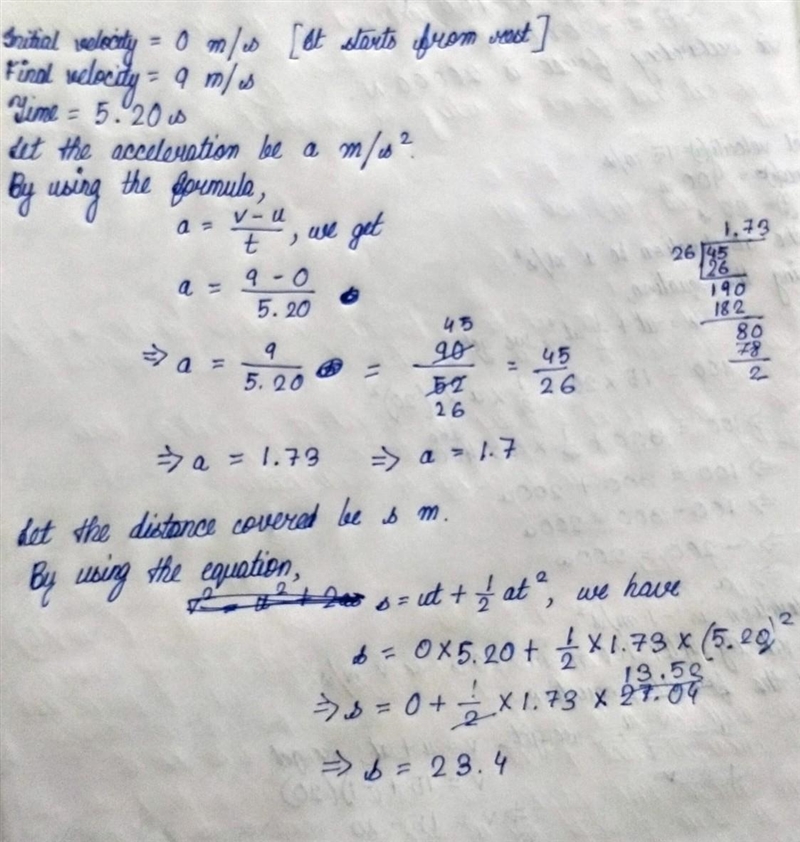 Initial velocity = 0 m/s [It starts from rest]
Final velocity = 9 m/s
Time = 5.20 s
Let the acceleration be a m/s².
By using the formula,
a = (v - u)/t, we get
a = (9 - 0)/5.20
⇒ a = 9/5.20 = 90/52 = 45/26
45
26
1.73
26 45
26
190
182
80
78
2
⇒ a = 1.73 ⇒ a = 1.7
Let the distance covered be s m.
By using the equation,
s = ut + 1/2 at², we have
s = 0 × 5.20 + 1/2 × 1.73 × (5.20)²
13.52
⇒ s = 0 + 1/2 × 1.73 × 27.04
⇒ s = 23.4